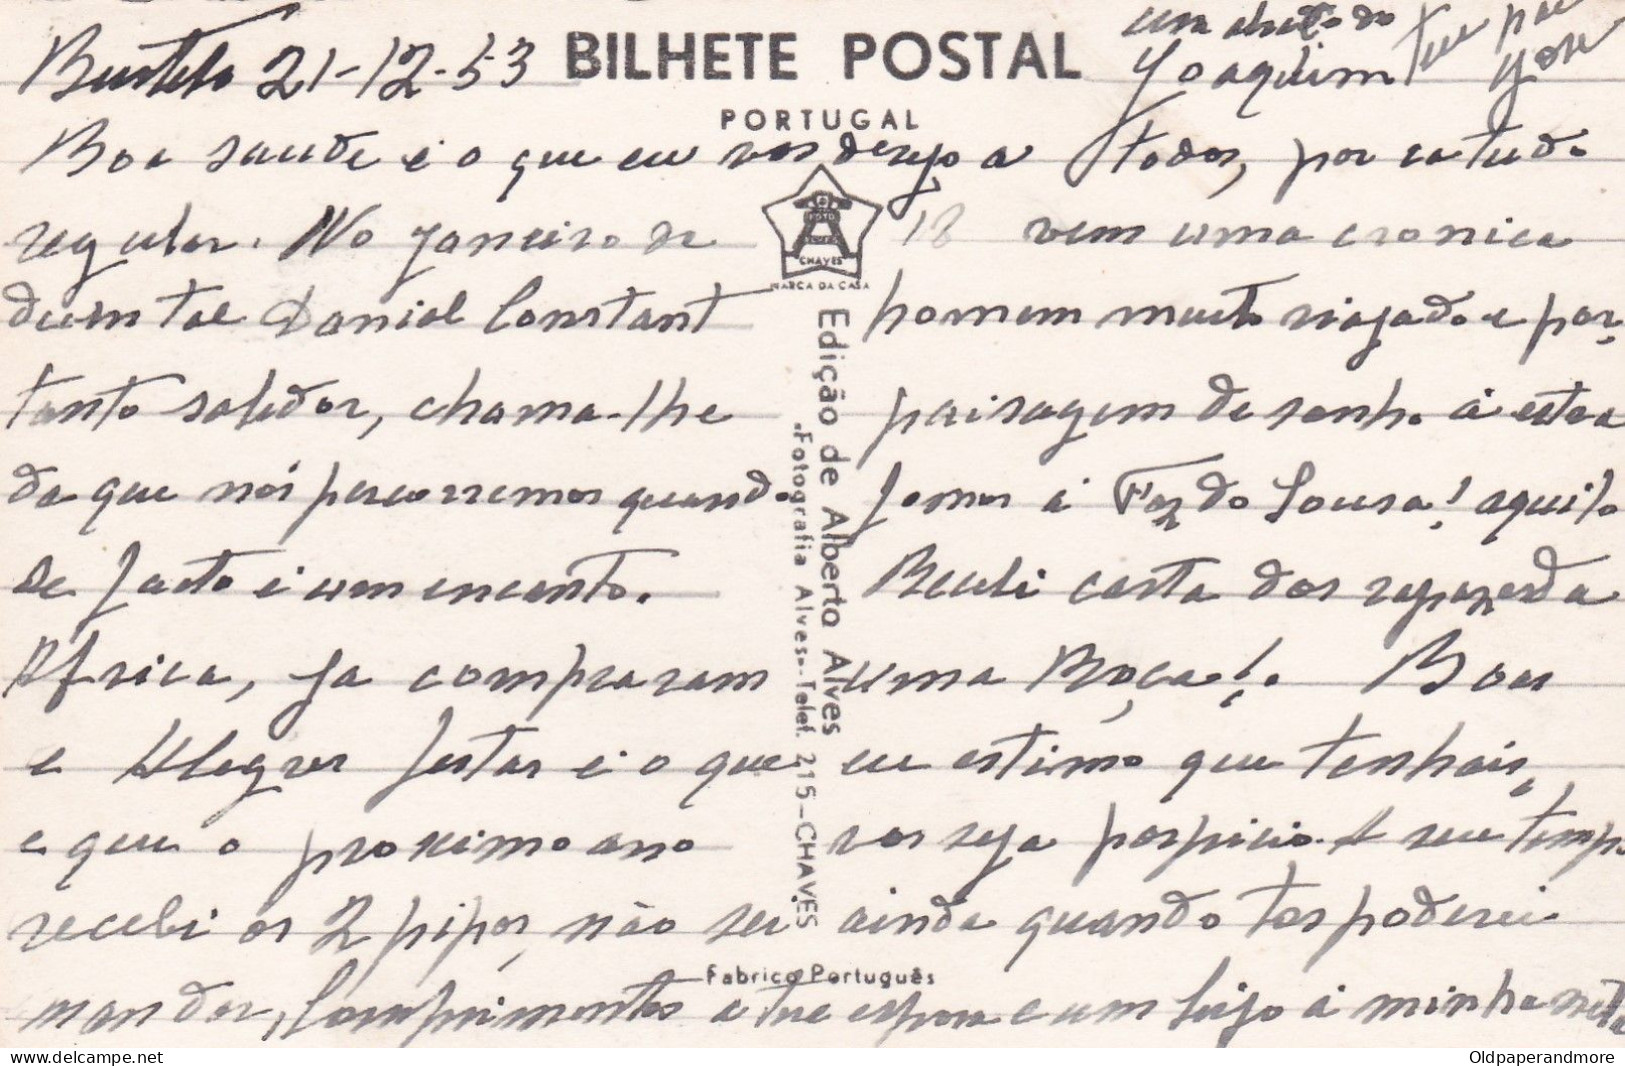 Bustelo 21-12-53
BILHETE POSTAL
PORTUGAL
um abraço do Joaquim
Teu pai
José
Boa saude é o que eu vos desejo a todos, por ca tudo
regular. No Janeiro de 18 vem uma cronica
dum tal Daniel Constant homem muito viajado e por,
tanto sabedor, chama-lhe paisagem de sonho á estra
da que nós percorremos quando fomos á Foz do Sousa! aquilo
de facto é um encanto. Recebi carta dos rapazes da
Africa, ja compraram uma Roça!. Boas
e Alegres festas é o que eu estimo que tenhais,
e que o proximo ano vos seja porpicio. A seu tempo
recebi os 2 pipos, não sei ainda quando tos poderei
mandar, Comprimentos a tua esposa e um beijo á minha neta
FOTO
CHAVES
MARCA DA CASA
Edição de Alberto Alves
«Fotografia Alves»-Telef. 215-CHAVES
Fabrico Português
Oldpaperandmore